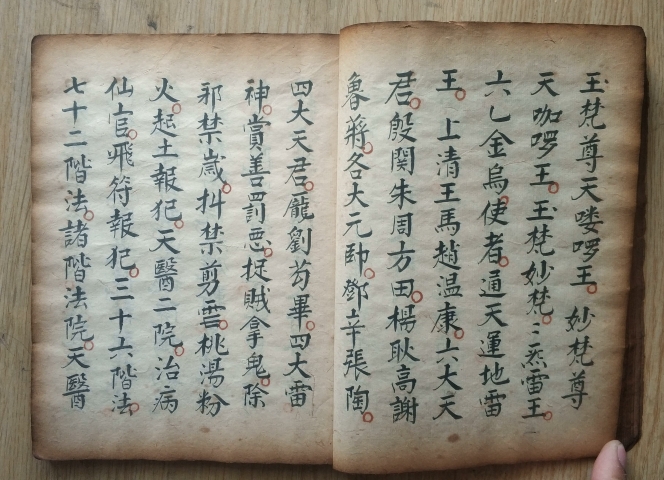 玉梵尊天喽啰王。妙梵尊
天咖啰王。玉梵妙梵。三炁雷王。
六乙金烏使者。通天運地雷
王。上清王馬趙温康。六大天
君。殷関朱周方田。楊耿高謝
魯蔣。各大元帥。鄧辛張陶。
四大天君。龐劉苟畢。四大雷
神。賞善罰悪。捉賊拿鬼。除
邪禁嵗。抖禁剪雲。桃湯粉
火。起土報犯。天醫二院。治病
仙官。飛符報犯。三十六階法。
七十二階法。諸階法院。天醫